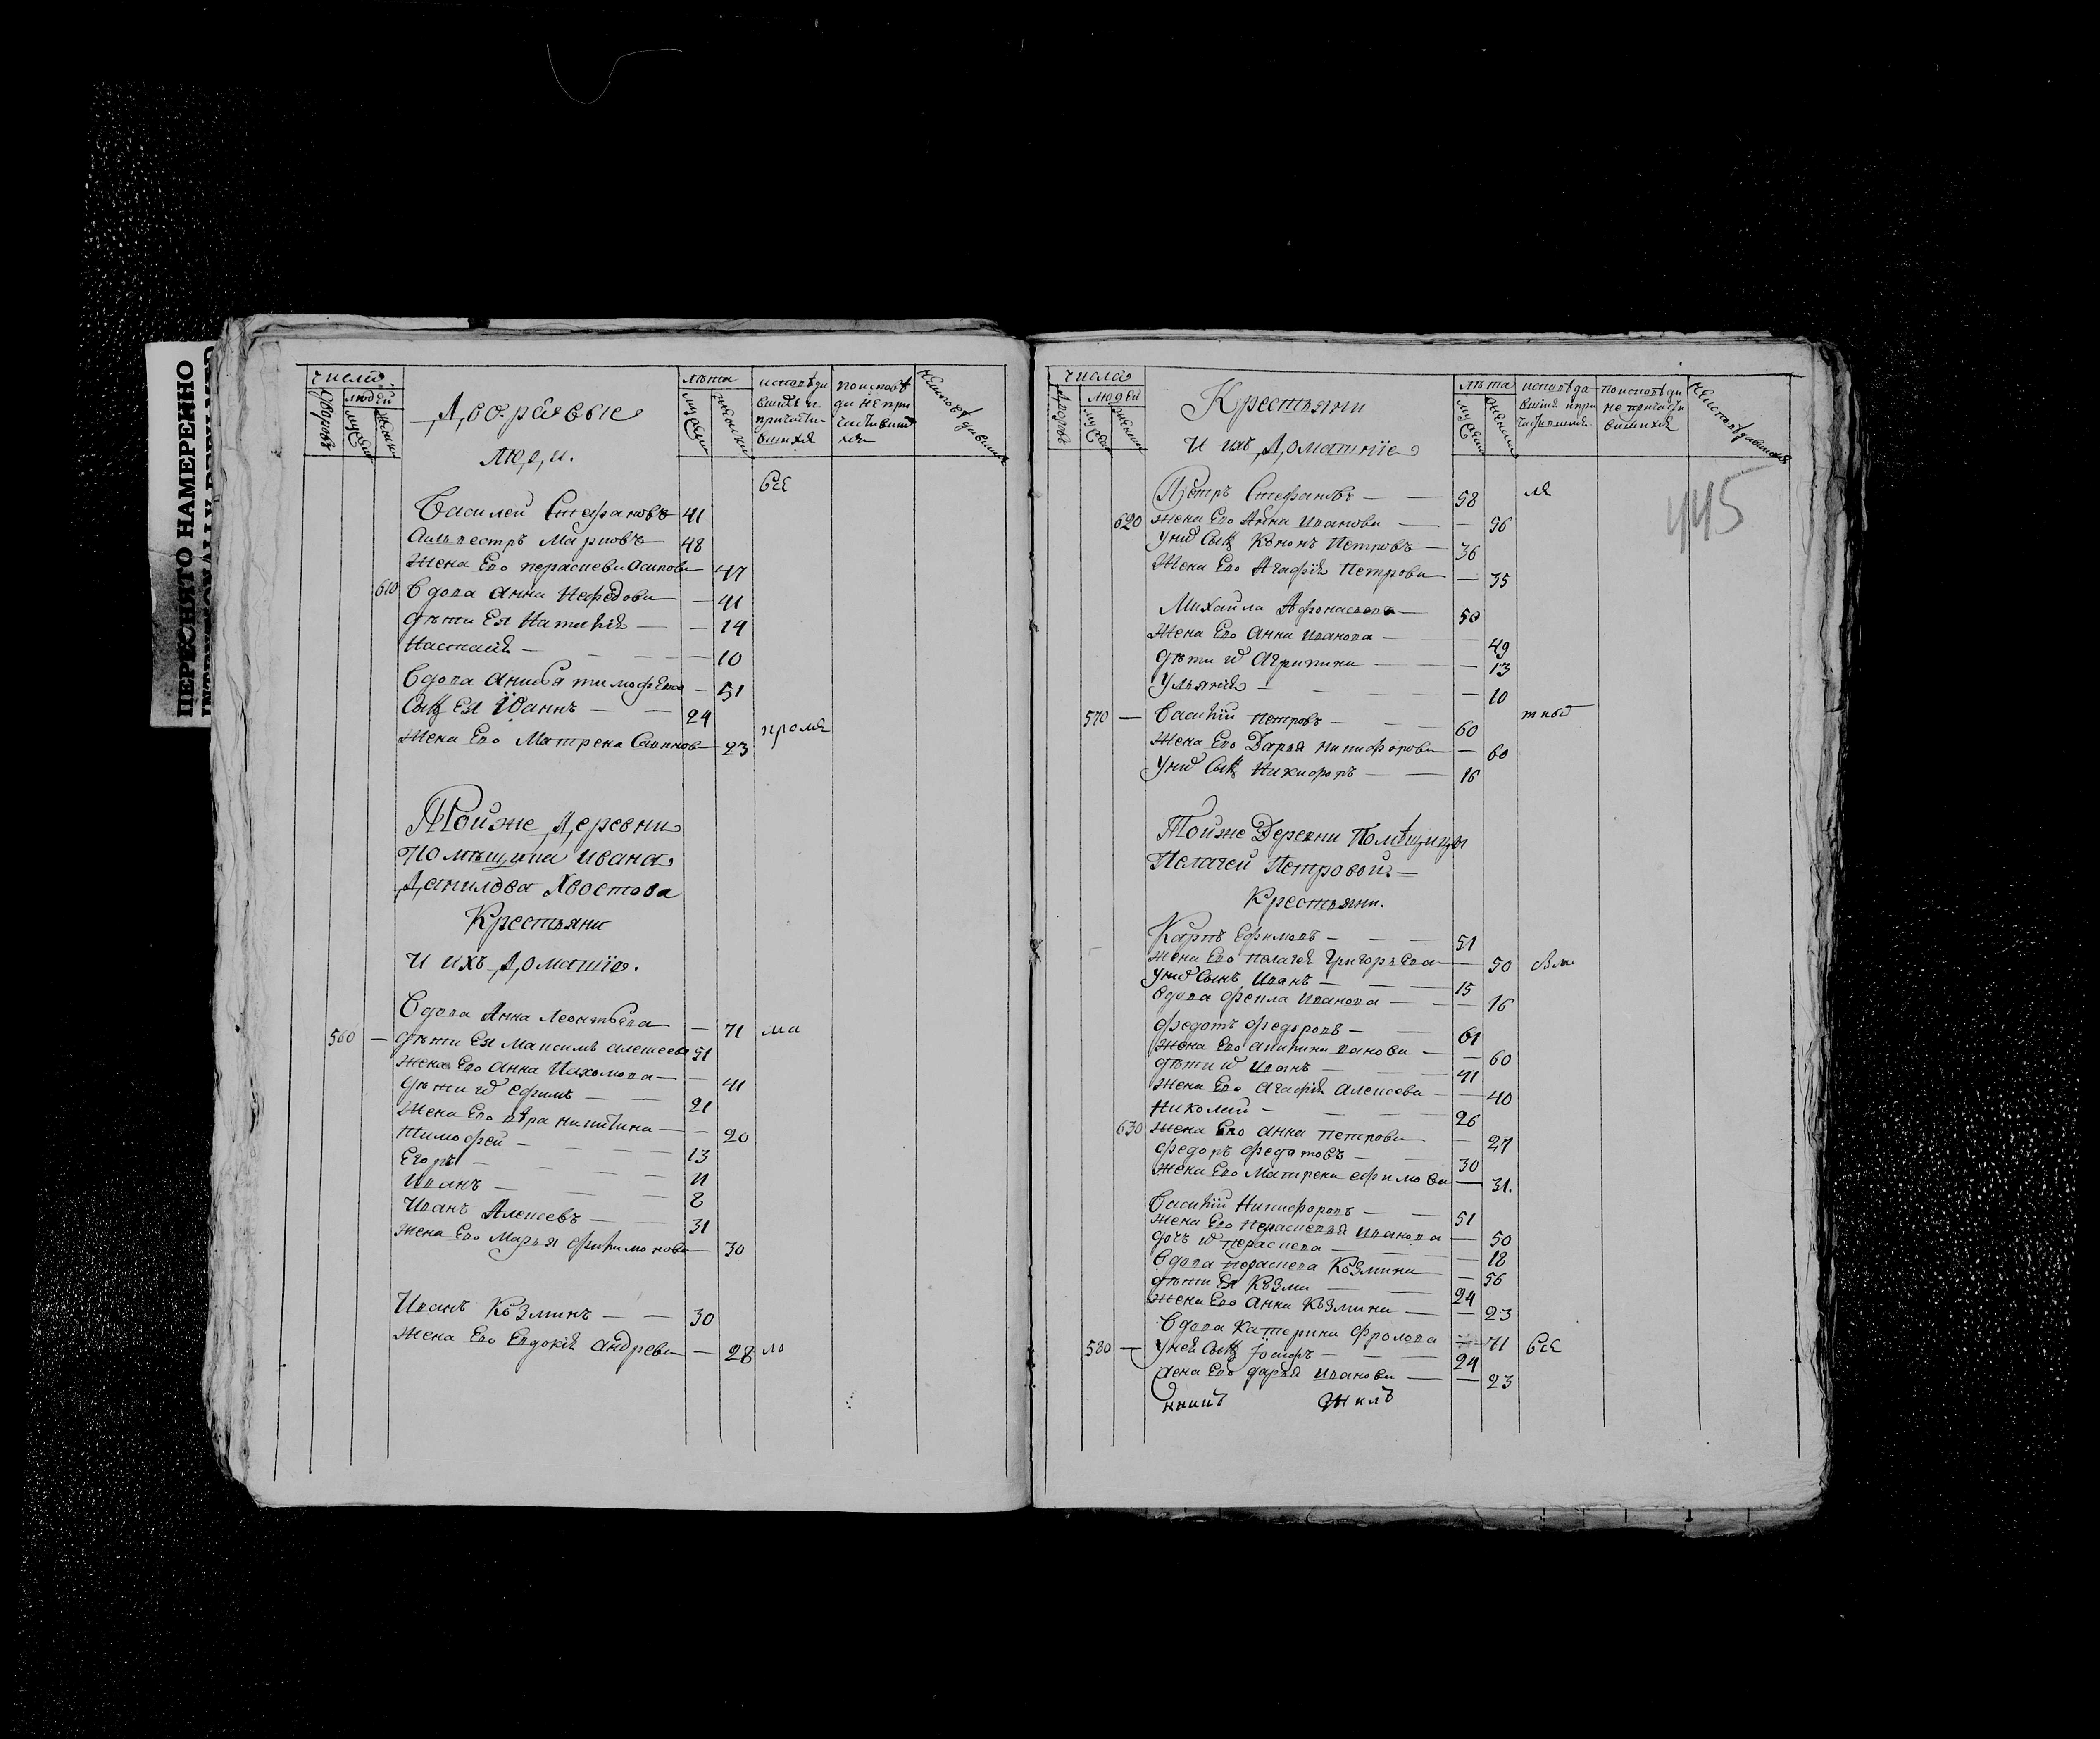 ПЕРЕСНЯТО НАМЕРЕННО
числа
Дворовъ
людей
мужеска
женска
Дворовые
люди.
лѣта
мужеска
женска
исповѣда
вшихся и
причасти
вшихся
по исповѣ
ди непри
частивши
хся
Неисповѣдавшихся
Все
Василей Стефановъ 41
Силвестръ Марковъ 48
Жена Его Параскева Осипова 47
610 Вдова Анна Нефедова — 41
дѣти Ея Наталія — — 14
Настасія — — — 10
Вдова Анисья тимофѣева — 51
Сынъ Ея Іоаннъ — — 24
Жена Его Матрена Саввинова 23
Тойже Деревни
Помѣщика Ивана
Данилова Хвостова
Крестьяни
И ихъ Домашніе.
Вдова Анна Леонтьева — 71
560 — дѣти Ея Максимъ алексеевъ 51
Жена Его Анна Пахомова — — 41
дѣти и Ефимъ — — 21
Жена Его вѣра никитина — — 20
Тимофей — — — 13
Егоръ — — — 11
Иванъ — — — 8
Иванъ Алексеевъ — — 31
Жена Его Марья Филимонова — 30
Иванъ Козминъ — — 30
Жена Его Евдокія андреева — 28
числа
Дворовъ
людей
мужеска
женска
Крестьяни
И ихъ Домашніе
лѣта
мужеска
женска
исповѣда
вшихся и при
частившихся
по исповѣди
не причасти
вшихся
Неисповѣдавшихся
445
Петръ Стефановъ — — 58
620 Жена Его Анна Иванова — — 56
У них Сынъ Кононъ Петровъ — 36
Жена Его Агафія Петрова — 35
Михайла Афонасьевъ — 50
Жена Его Анна Иванова — — 49
дѣти и Агрипина — — — 13
Ульянія — — — — 10
570 — Василій Петровъ — — — 60
Жена Его Дарья никифорова — 60
У них Сынъ Никифоръ — — 16
Тойже Деревни Помѣщицы
Пелагеи Петровой —
Крестьяни.
Карпъ Ефимовъ — — — 51
Жена Его Пелагея Григорьева — 50
У них Сынъ Иванъ — — — 15
Вдова Фекла Иванова — — — 16
Федотъ Федоровъ — — 61
Жена Его — — 60
дѣти и Иванъ — — — 41
Жена Его Агафія Алексеева — — 40
Николай — — — 26
630 Жена Его Анна Петрова — 27
Федоръ Федотовъ — — 30
Жена Его Матрена Ефимова — 31.
Василій Никифоровъ — — 51
Жена Его Параскевья Иванова — 50
дочь и Параскева — — — 18
Вдова Параскева Козмина — 56
дѣти Ея Козма — — 24
Жена Его Анна Козмина — — 23
Вдова Катерина Фролова — 71 Все
580 — У ней Сынъ Іосифъ — — — 24
Жена Его дарья Иванова — — 23